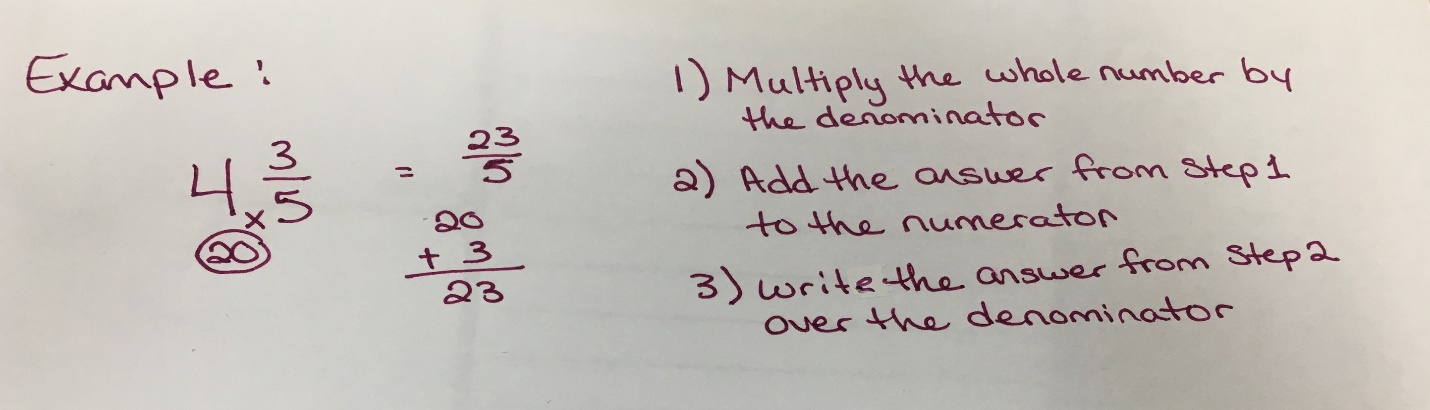 Example:
4 3/5 = 23/5
×
20
20
+ 3
23
1) Multiply the whole number by
the denominator
2) Add the answer from Step 1
to the numerator
3) Write the answer from Step 2
over the denominator